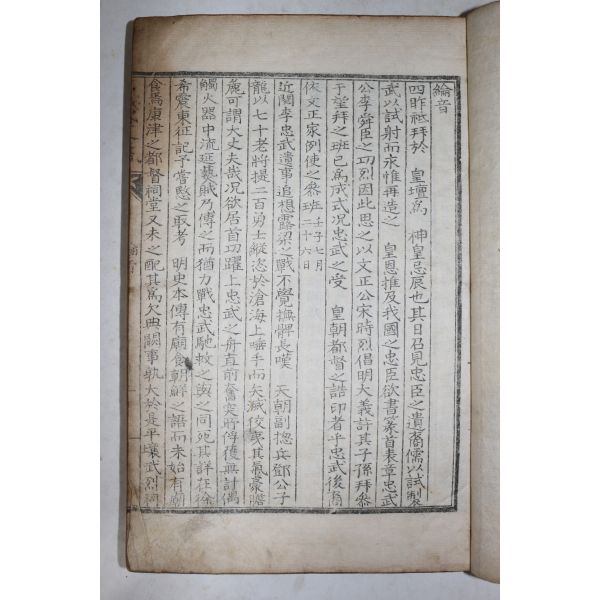 綸音
四昨祗拜於　皇壇爲　神皇忌辰也其日召見忠臣之遺裔儒以試製
武以試射而永惟再造之　皇恩推及我國之忠臣欲書篆首表章忠武
公李舜臣之功烈因此思之以文正公宋時烈倡明大義許其子孫拜參
于望拜之班已爲成式況忠武之受　皇朝都督之誥印者乎忠武後裔
依文正家例使之參班壬子七月二十六日
近閱李忠武遺事追想露梁之戰不覺撫髀長嘆　天朝副摠兵鄧公子
龍以七十老將提二百勇士縱恣於滄海上唾手而矢滅佼夷其氣豪膽
麁可謂大丈夫哉况欲居首功躍上忠武之舟直前奮突將俘獲無計偶
觸火器中流延爇賊乃傅之而猶力戰忠武馳救之與之同死其詳在徐
希震東征記予嘗慜之取考　明史本傳有廟食朝鮮之語而未始有廟
食焉康津之都督祠堂又未之配其爲欠典闕事孰大於是平壤武烈祠